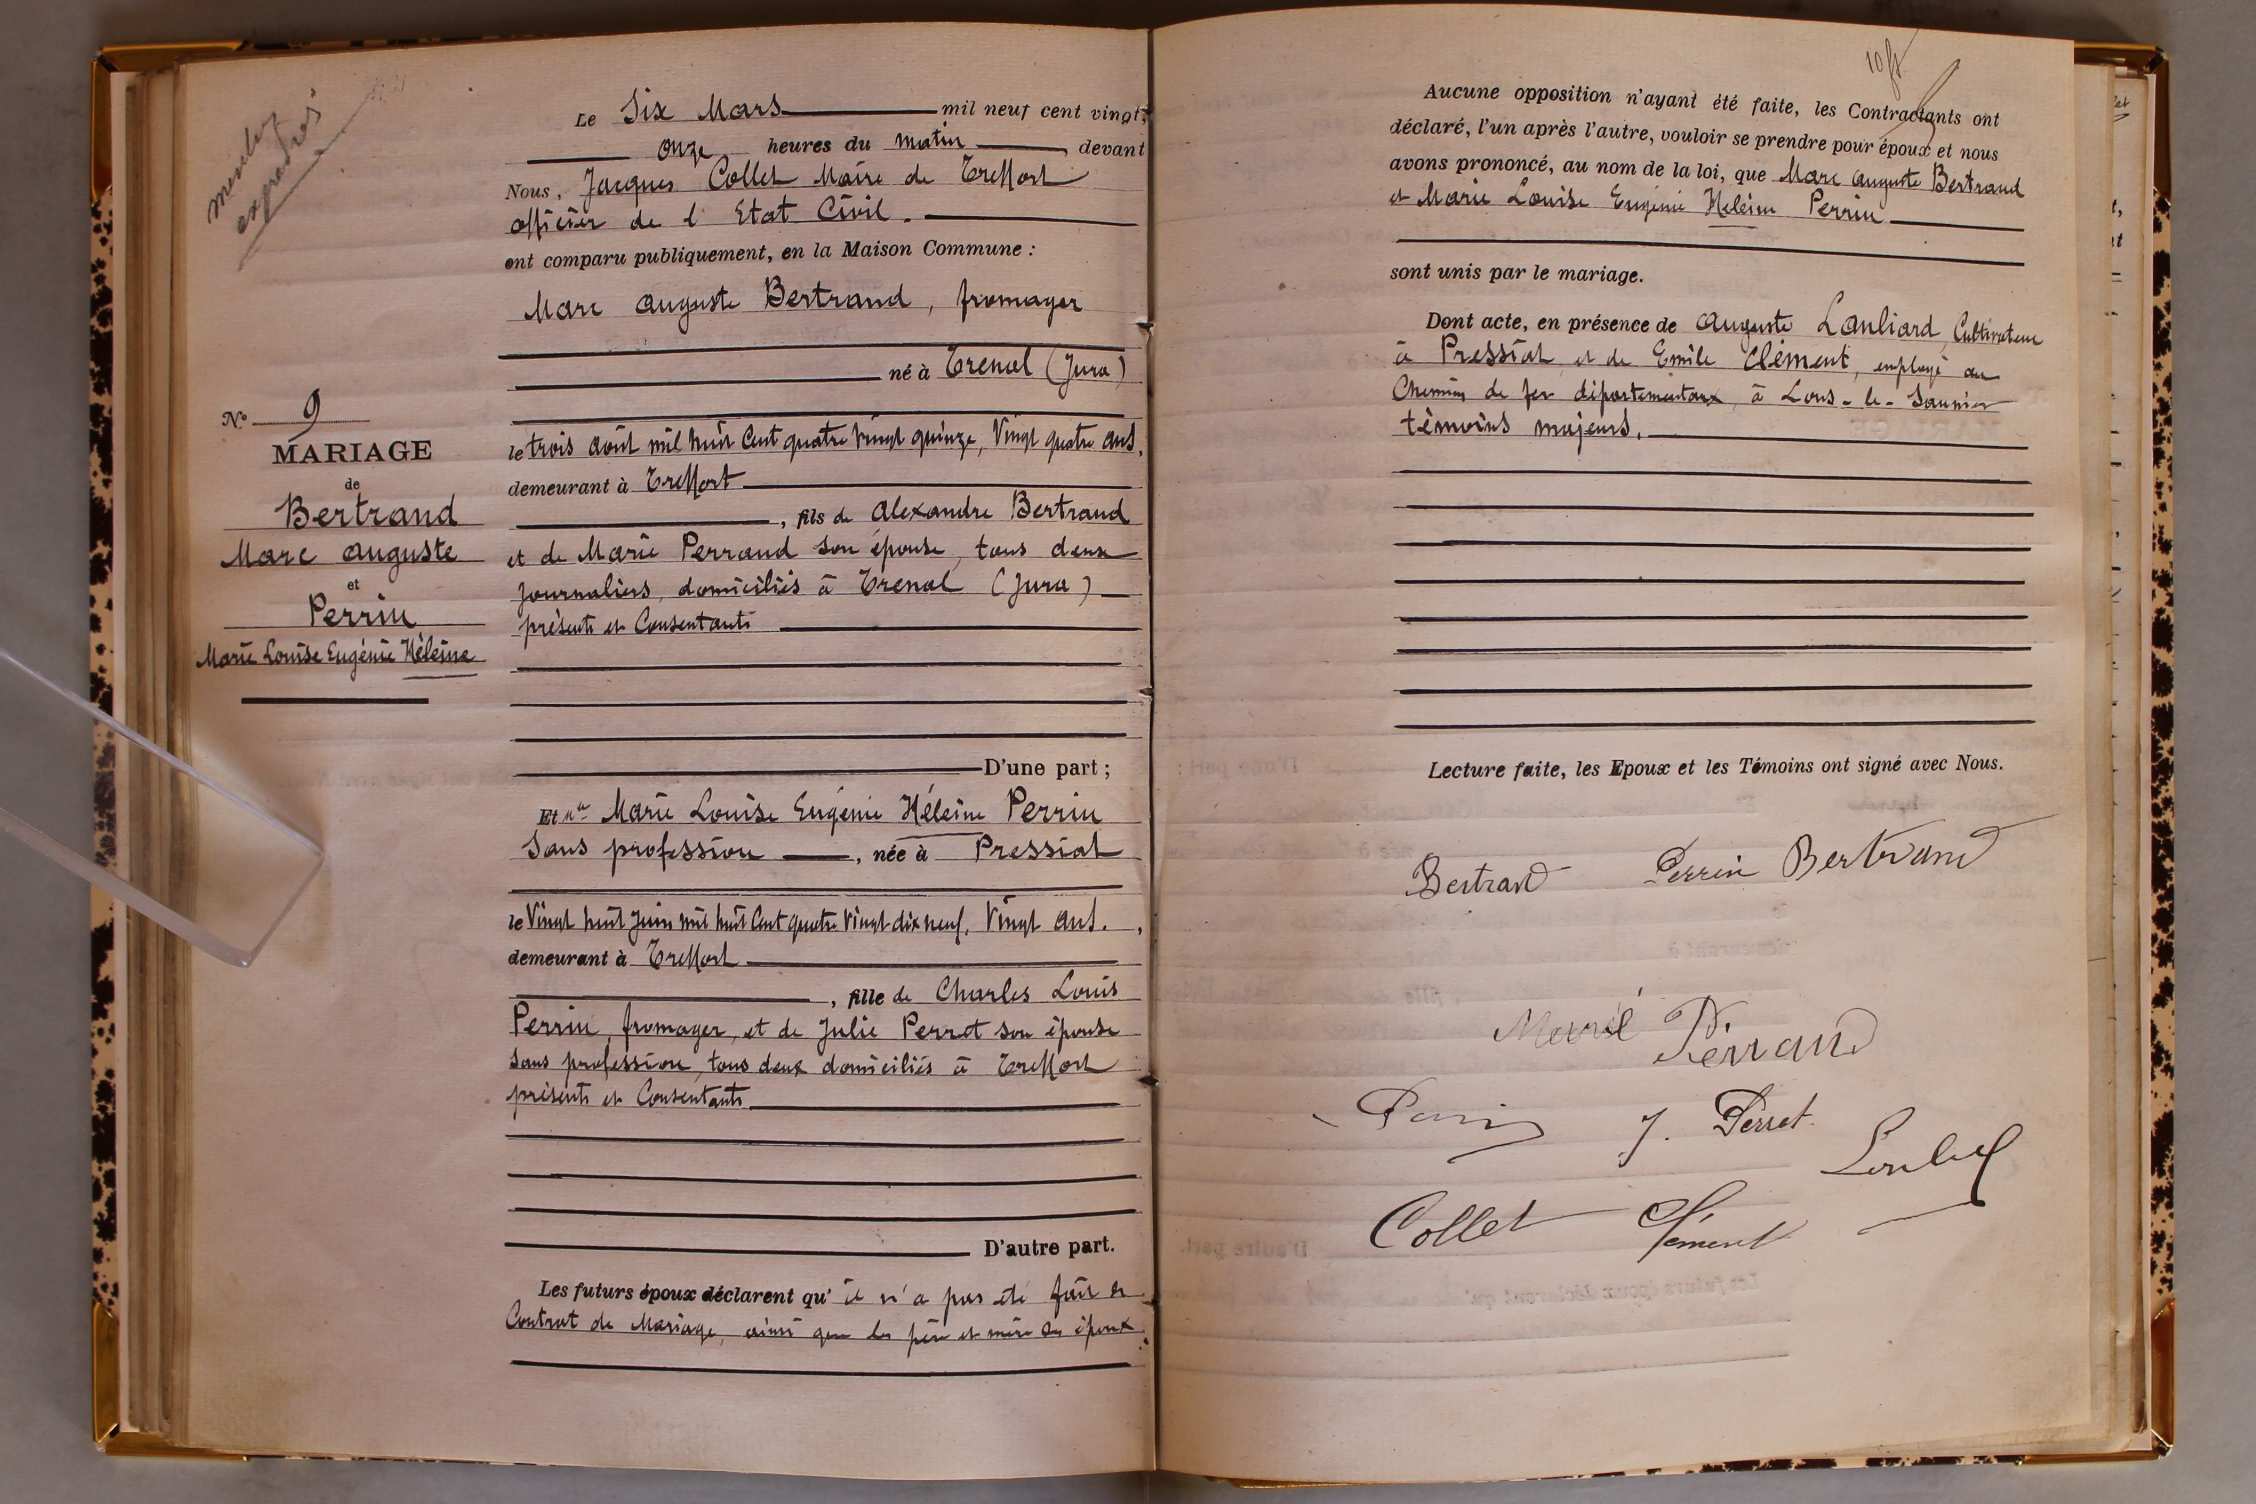 mentions
expédiées
Le Six Mars mil neuf cent vingt,
onze heures du matin, devant
Nous, Jacques Collet Maire de Treffort
officier de l Etat Civil.
ont comparu publiquement, en la Maison Commune :
Marc Auguste Bertrand, fromager
né à Trenal (Jura)
le trois août mil huit Cent quatre vingt quinze, Vingt quatre ans,
demeurant à Treffort
, fils de Alexandre Bertrand
et de Marie Perrand son épouse, tous deux
journaliers, domiciliés à Trenal (Jura)
présents et Consentants
D'une part ;
Et Mlle Marie Louise Eugénie Héleine Perrin
Sans profession, née à Pressiat
le Vingt huit Juin mil huit Cent quatre Vingt dix neuf, Vingt ans.,
demeurant à Treffort
, fille de Charles Louis
Perrin, fromager, et de Julie Perret son épouse
sans profession, tous deux domiciliés à Treffort
présents et Consentants
D'autre part.
Les futurs époux déclarent qu' il n'a pas été fait de
Contrat de Mariage, ainsi que les père et mère des époux.
No 9
MARIAGE
de
Bertrand
Marc Auguste
et
Perrin
Marie Louise Eugénie Héleine
10 fr
Aucune opposition n'ayant été faite, les Contractants ont
déclaré, l'un après l'autre, vouloir se prendre pour époux et nous
avons prononcé, au nom de la loi, que Marc Auguste Bertrand
et Marie Louise Eugénie Héleine Perrin
sont unis par le mariage.
Dont acte, en présence de Auguste Lauliard, Cultivateur
à Pressiat, et de Emile Clément, employé au
Chemins de fer départementaux, à Lons-le-Saunier
témoins majeurs.
Lecture faite, les Epoux et les Témoins ont signé avec Nous.
Bertrand Perrin Bertrand
Marie Perrand
Perrin J. Perret
Collet Clément